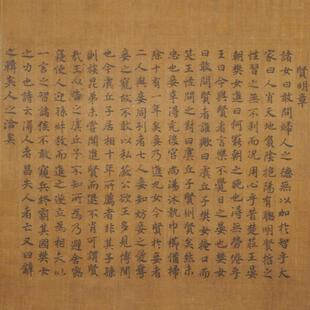 賢明章
諸女曰敢問婦人之德無以加於智乎大
家曰人肖天地負陰抱陽有聰明賢哲之
性習之無不利而況用心乎昔楚莊王晏
朝樊女進曰何罷朝之晚也得無勞倦乎
王曰今與賢者言樂不覺日之晏也樊女
曰敢問賢者誰歟曰虞丘子樊女掩口而
笑王怪問之對曰虞丘子賢則賢矣然未
忠也妾幸得充後宮尚湯沐執巾櫛備掃
除十有一年矣妾乃進九女今賢於妾者
二人與妾同列者七人妾知妨妾之愛奪
妾之寵然不敢以私蔽公欲王多見博聞
也今虞丘子居相十年所薦者非其子孫
則族昆弟未嘗聞進賢而退不肖可謂賢
哉王以告之虞丘子不知所為乃避舍露
寢使人迎孫叔敖而進之遂立為相夫以
一言之智諸侯不敢窺兵終霸其國樊女
之力也詩云得人者昌失人者亡又曰辭
之輯矣人之洽矣